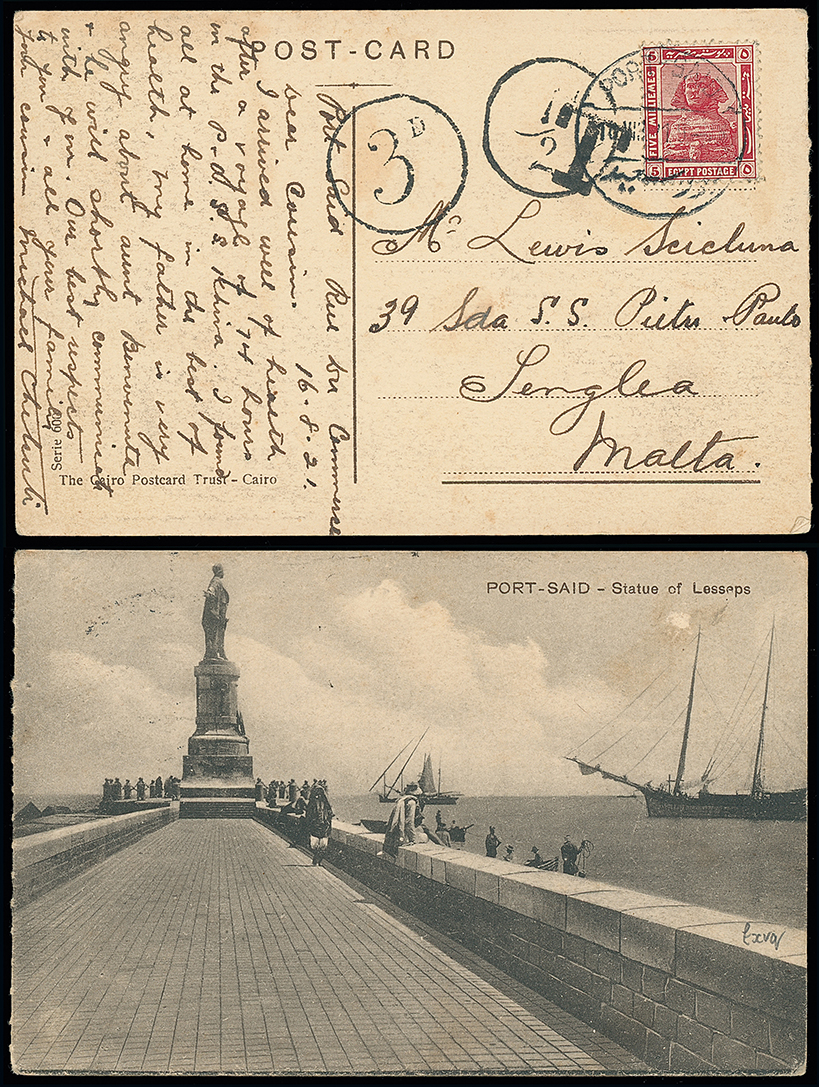 POST-CARD
Port Said Rue du Commerce
16.8.21.
Dear Cousin.
I arrived well of health
after a voyage of 74 hours
in the P. & O. S.S. Khiva. I found
all at home in the best of
health, my father is very
angry about aunt Benvenuta
& he will shortly communicate
with you. Our best respects
to you & all your family
your cousin Michael
Serie 600
The Cairo Postcard Trust - Cairo
3D
1
2
T
PORT SAID
5
٥
FIVE MILLIEMES
5 EGYPT POSTAGE ٥
Mr Lewis Scicluna
39 Sda S.S. Pietru Paulo
Senglea
Malta.
PORT-SAID - Statue of Lesseps